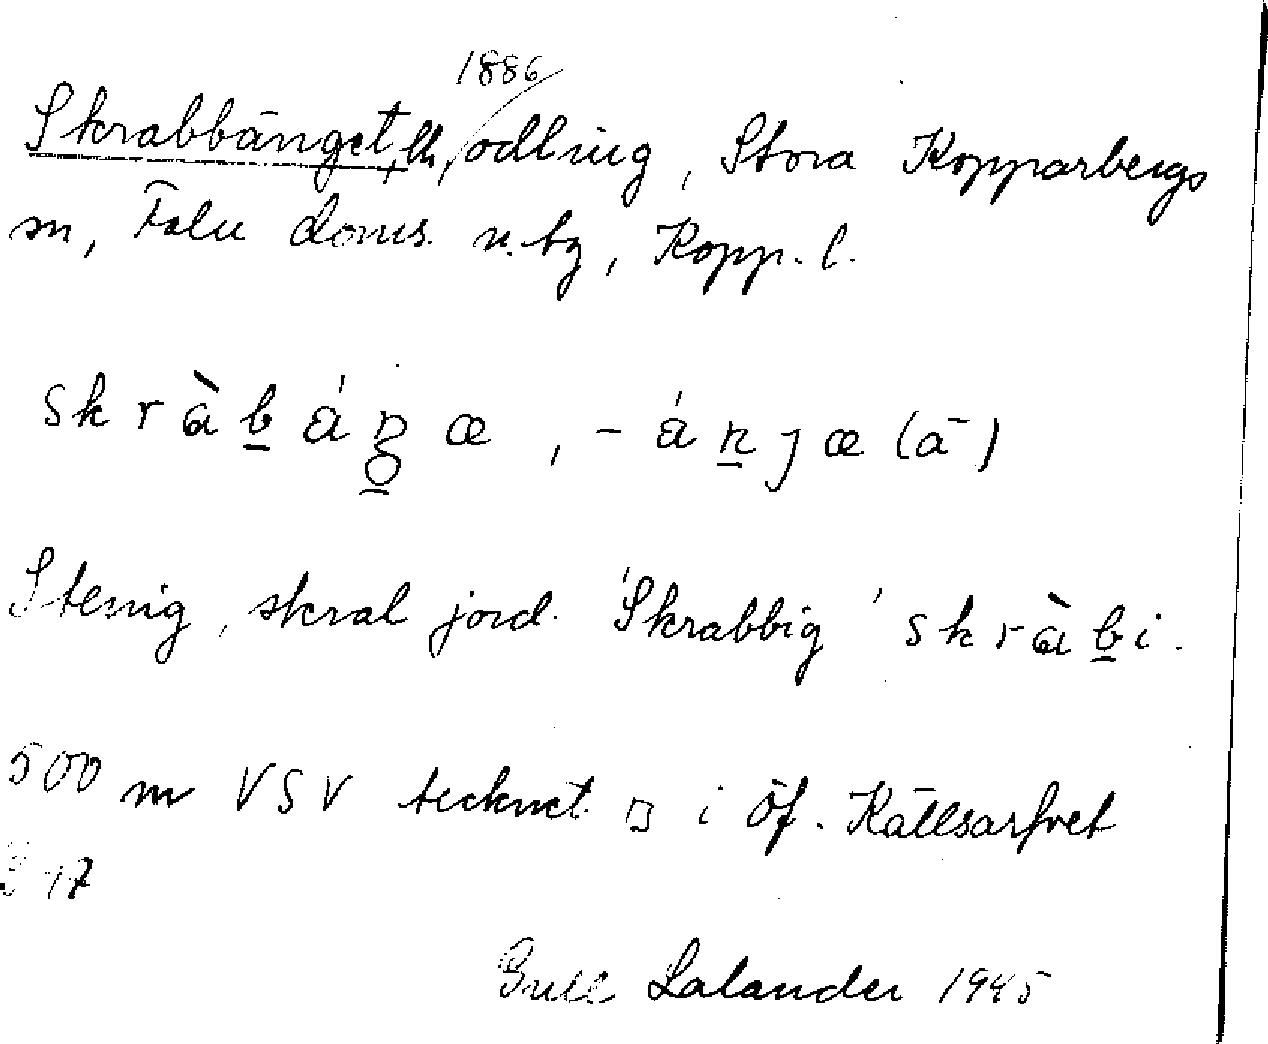 1886
Skrabbänget, lh, odling, Stora Kopparbergs
sn, Falu doms. n. tg, Kopp. l.
skràbáŋ̱œ, -áṉjœ (ā)
Stenig, skral jord. 'Skrabbig' skràḇi.
500 m VSV tecknet □ i Öf. Källsarfvet
17
Gull Lalander 1945